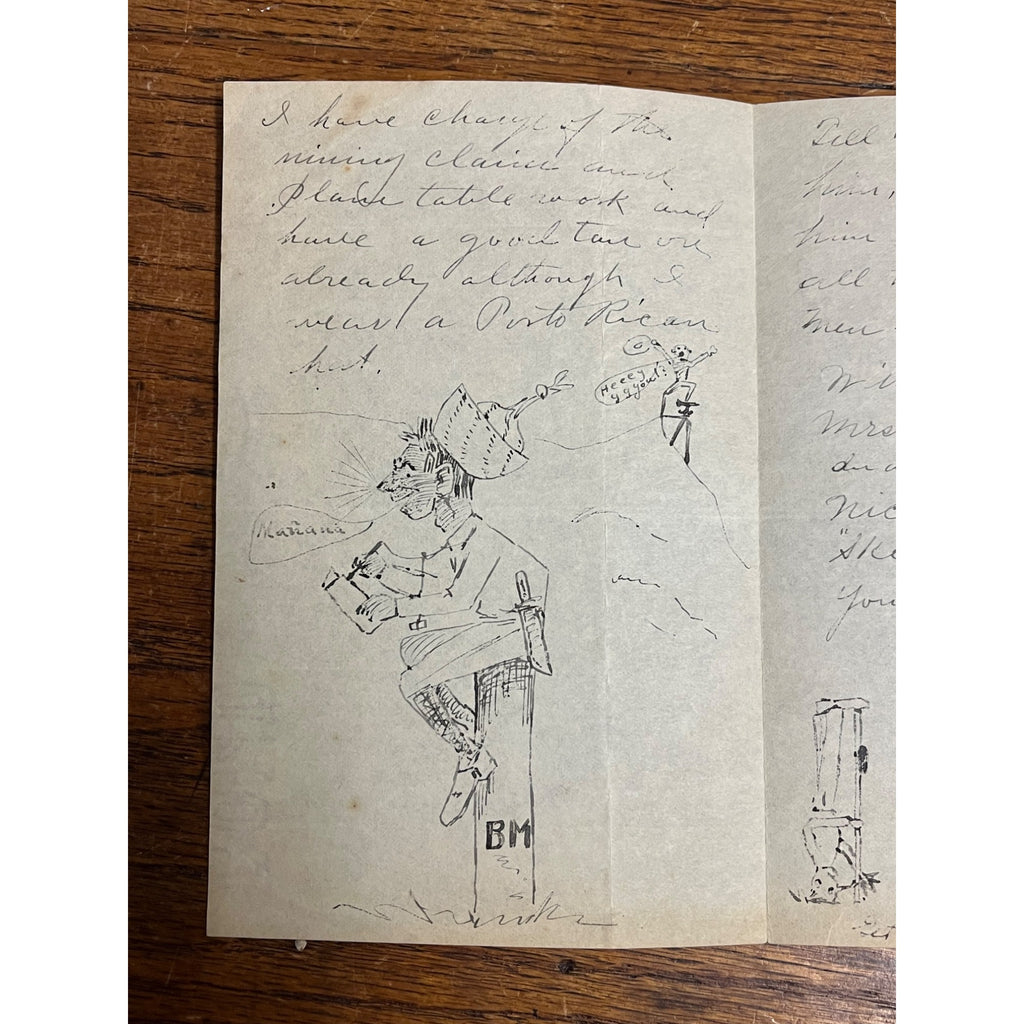 I have charge of the
mining claim and
Plane table work and
have a good tan on
already although I
wear a Porto Rican
hat.
Heeey
yyyou!?
Mañana
BM
Tell
him,
him
all
men
Mrs
Nic
"Ske
You